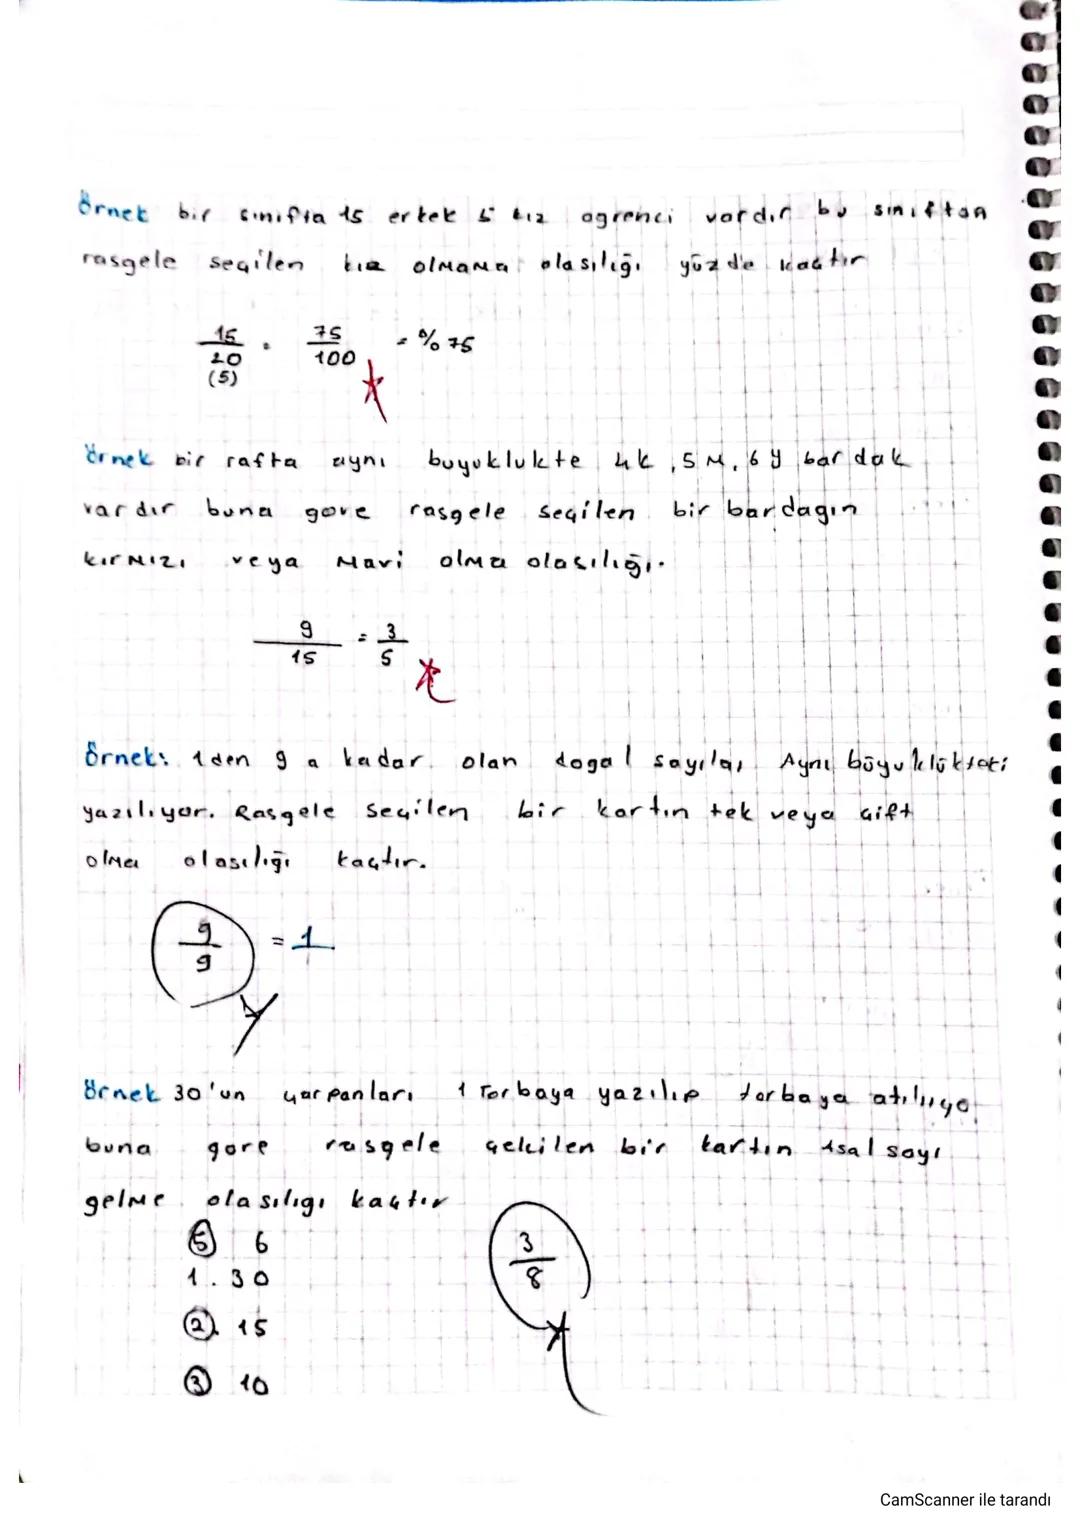 örnek bir sınıfta 15 erkek 5 kız ogrenci vardır bu sınıftan
rasgele seçilen kız olmama olasılığı yüzde kaçtır
15/20 = 75/100 = %75
(5)
örnek bir rafta aynı buyuklukte 4k, 5M, 6y bardak
vardır buna gore rasgele seçilen bir bardagın
kırmızı veya Mavi olma olasılığı.
9/15 = 3/5
örnek: 1den 9 a kadar olan dogal sayılar Aynı büyüklükteki
yazılıyor. Rasgele seçilen bir kartın tek veya çift
olma olasılığı kaçtır.
9/9 = 1
örnek 30'un çarpanları 1 Torbaya yazılıp torbaya atılıyo.
buna gore rasgele çekilen bir kartın Asal sayı
gelme olasılıgı kaçtır
5 6
1.30
2. 15
3 10
3/8
CamScanner ile tarandı